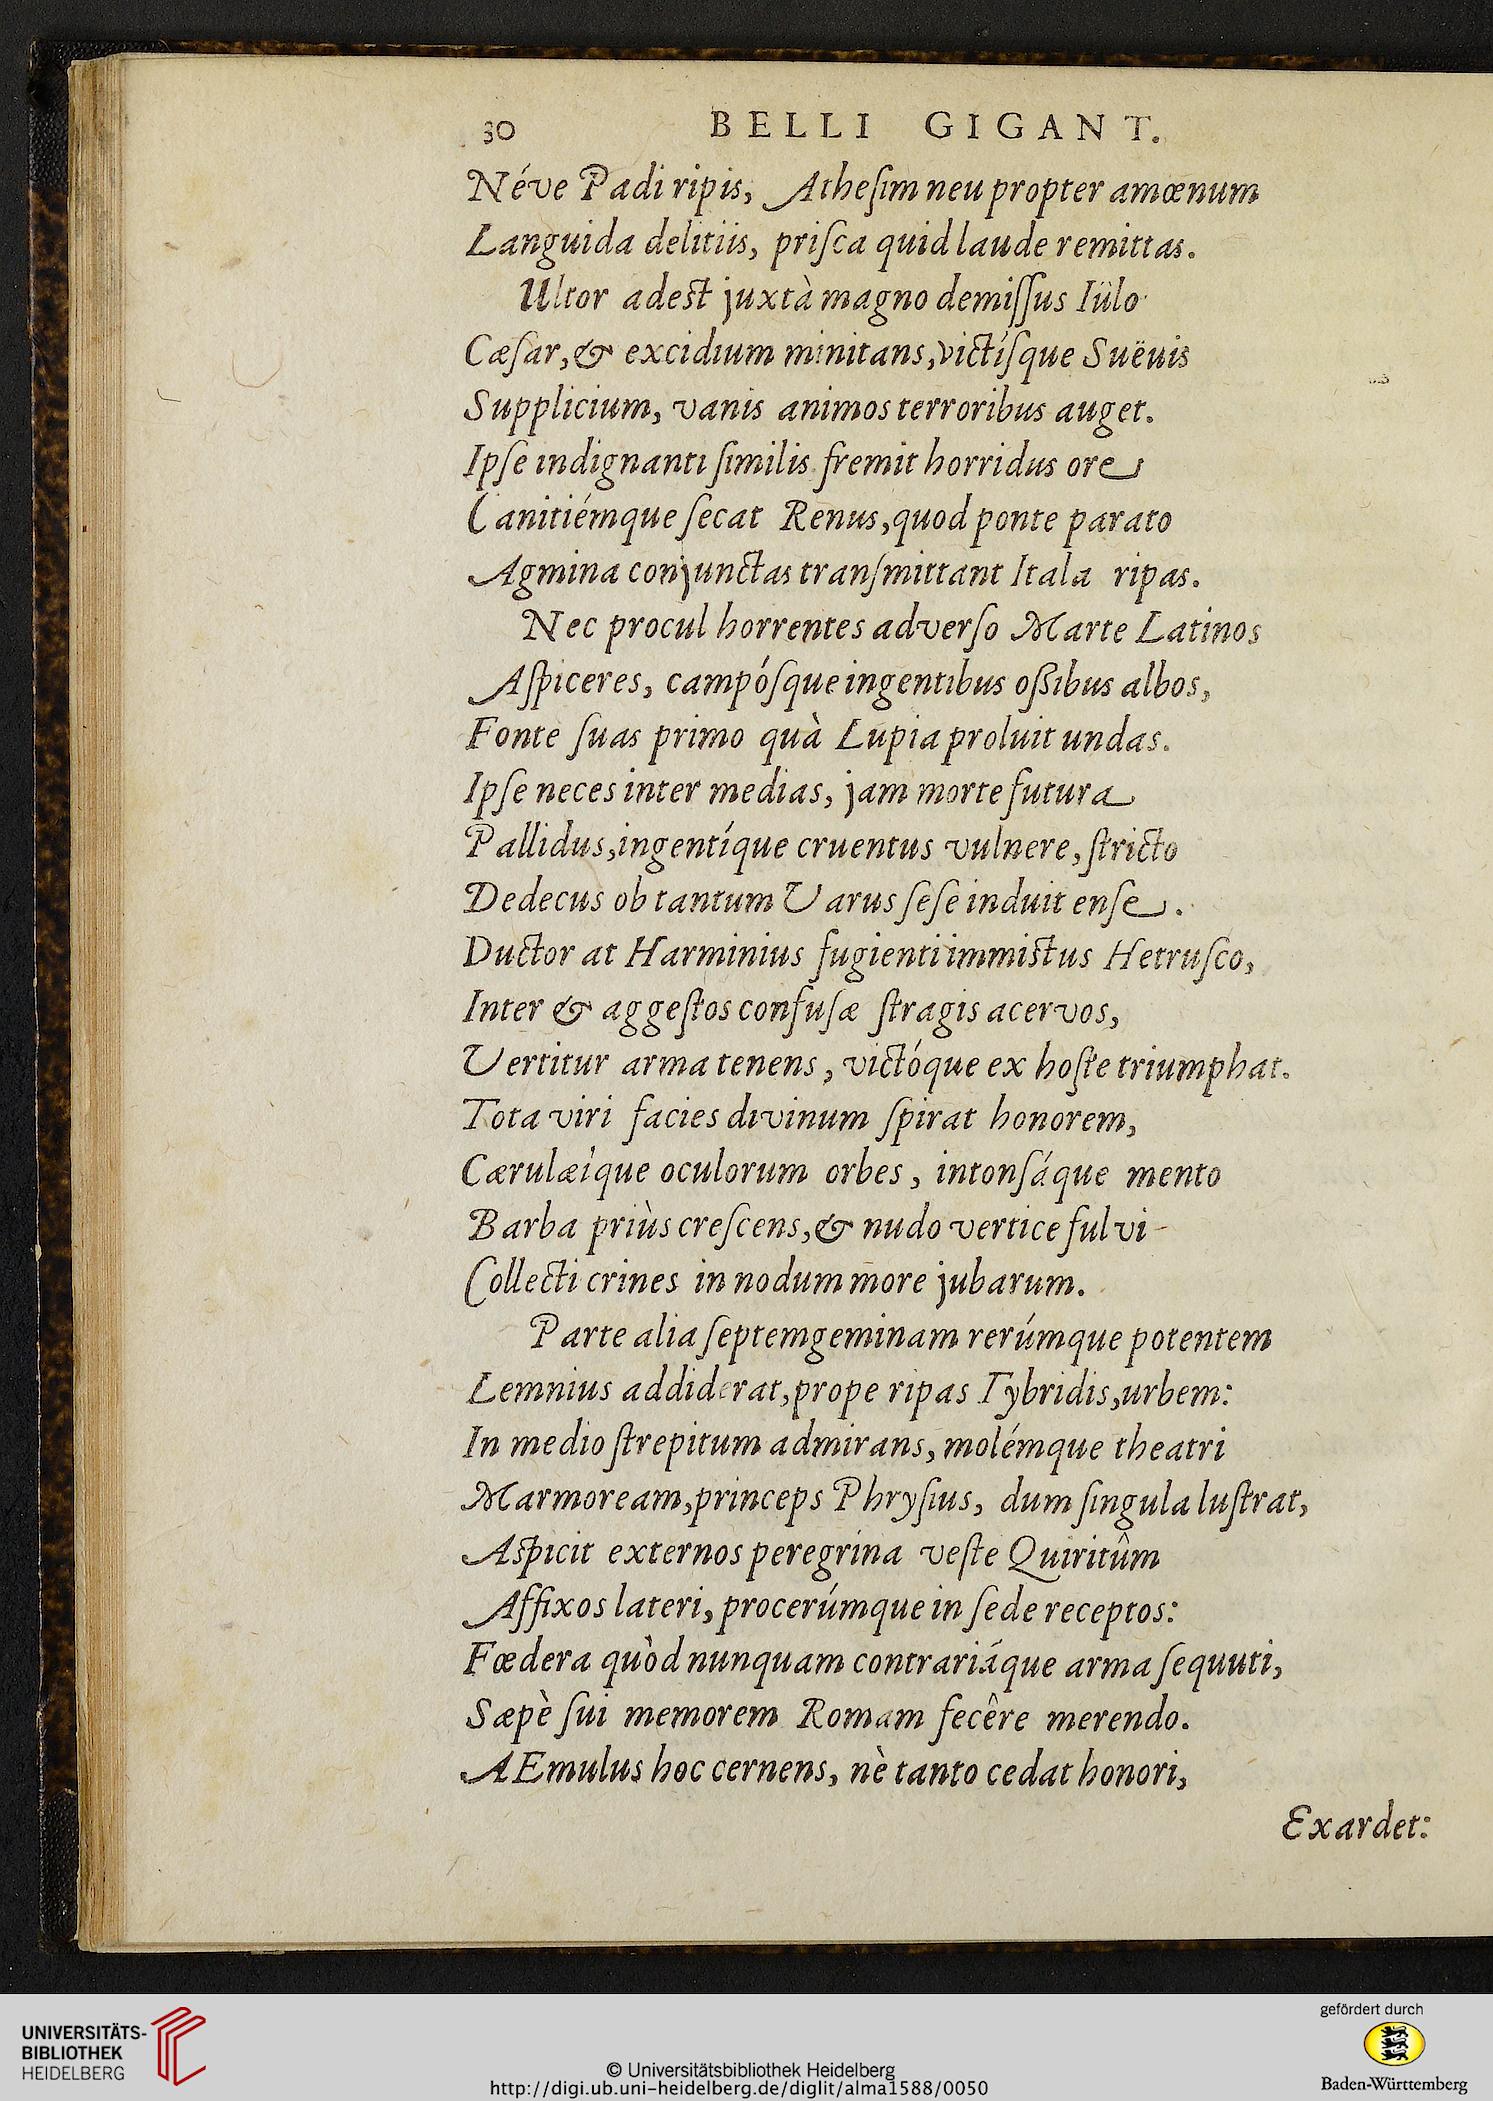 30 BELLI GIGANT.
Néve Padi ripis, Athesim neu propter amœnum
Languida delitiis, prisca quid laude remittas.
Ultor adest juxtà magno demissus Iülo
Cæsar, & excidium minitans, victísque Suëuis
Supplicium, vanis animos terroribus auget.
Ipse indignanti similis fremit horridus ore
Canitiémque secat Renus, quod ponte parato
Agmina conjunctas transmittant Itala ripas.
Nec procul horrentes adverso Marte Latinos
Aspiceres, campósque ingentibus ossibus albos,
Fonte suas primo quà Lupia proluit undas.
Ipse neces inter medias, jam morte futura
Pallidus, ingentíque cruentus vulnere, stricto
Dedecus ob tantum Varus sese induit ense.
Ductor at Harminius fugienti immistus Hetrusco,
Inter & aggestos confusæ stragis acervos,
Vertitur arma tenens, victóque ex hoste triumphat.
Tota viri facies divinum spirat honorem,
Cærulæíque oculorum orbes, intonsáque mento
Barba priùs crescens, & nudo vertice fulvi
Collecti crines in nodum more jubarum.
Parte alia septemgeminam rerúmque potentem
Lemnius addiderat, prope ripas Tybridis, urbem:
In medio strepitum admirans, molémque theatri
Marmoream, princeps Phrysius, dum singula lustrat,
Aspicit externos peregrina veste Quiritûm
Affixos lateri, procerúmque in sede receptos:
Fœdera quòd nunquam contrariáque arma sequuti,
Sæpè sui memorem Romam fecêre merendo.
AEmulus hoc cernens, nè tanto cedat honori,
Exardet:
UNIVERSITÄTS-
BIBLIOTHEK
HEIDELBERG
© Universitätsbibliothek Heidelberg
http://digi.ub.uni-heidelberg.de/diglit/alma1588/0050
gefördert durch
Baden-Württemberg